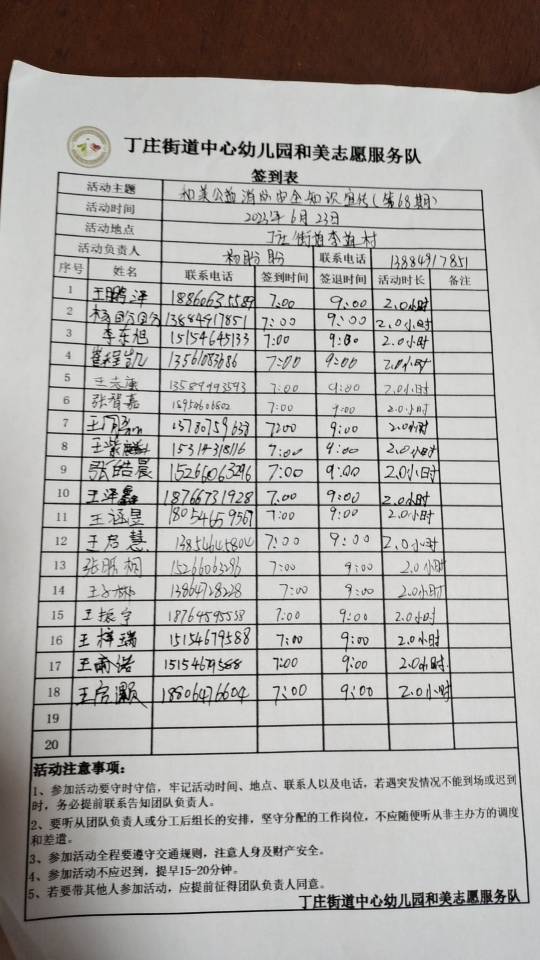 丁庄街道中心幼儿园和美志愿服务队
签到表
活动主题 和美公益消防安全知识宣传(第68期)
活动时间 2023年6月23日
活动地点 丁庄街道李道村
活动负责人 盼盼 联系电话 13884917851
序号 姓名 联系电话 签到时间 签退时间 活动时长 备注
1 王鹏泽 18860635589 7:00 9:00 2.0小时
2 13884917851 7:00 9:00 2.0小时
3 李东旭 15154645133 7:00 9:00 2.0小时
4 崔程凯 13561083686 7:00 9:00 2.0小时
5 王志强 13589993593 7:00 9:00 2.0小时
6 张智嘉 18954606802 7:00 9:00 2.0小时
7 13780759633 7:00 9:00 2.0小时
8 王紫麟 15314318116 7:00 9:00 2.0小时
9 张皓晨 15266063296 7:00 9:00 2.0小时
10 王泽鑫 18766731928 7:00 9:00 2.0小时
11 王涵昱 18054659567 7:00 9:00 2.0小时
12 王启慧 13854645804 7:00 9:00 2.0小时
13 张明桐 15266063296 7:00 9:00 2.0小时
14 13864728228 7:00 9:00 2.0小时
15 王振宇 18764595558 7:00 9:00 2.0小时
16 王梓瑞 15154679588 7:00 9:00 2.0小时
17 王雨诺 15154679588 7:00 9:00 2.0小时
18 王启灏 18806476604 7:00 9:00 2.0小时
19
20
活动注意事项:
1、参加活动要守时守信，牢记活动时间、地点、联系人以及电话，若遇突发情况不能到场或迟到
时，务必提前联系告知团队负责人。
2、要听从团队负责人或分工后组长的安排，坚守分配的工作岗位，不应随便听从非主办方的调度
和差遣。
3、参加活动全程要遵守交通规则，注意人身及财产安全。
4、参加活动不应迟到，提早15-20分钟。
5、若要带其他人参加活动，应提前征得团队负责人同意。
丁庄街道中心幼儿园和美志愿服务队